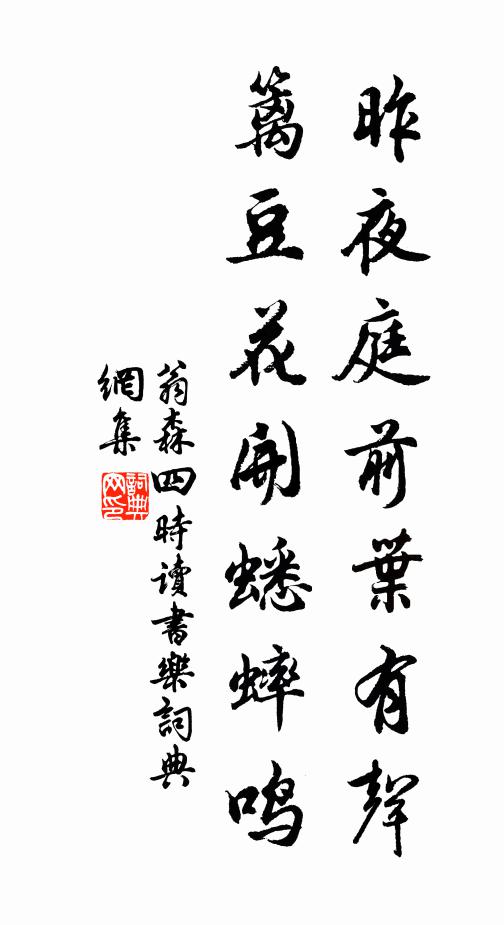 昨夜庭前葉有聲
籬豆花開蟋蟀鳴
翁森四時讀書樂詞典
網集
詞典
网印